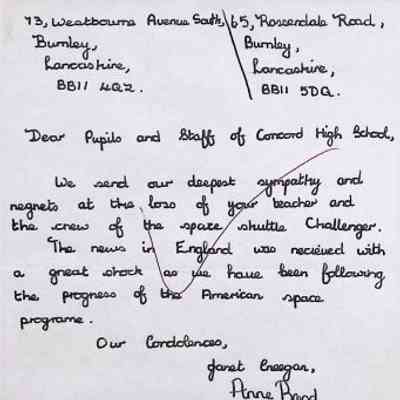 73, Westbourne Avenue South, 65, Rossendale Road,
Burnley, Burnley,
Lancashire, Lancashire,
BB11 4QZ. BB11 5DQ.
Dear Pupils and Staff of Concord High School,
We send our deepest sympathy and
regrets at the loss of your teacher and
the crew of the space shuttle Challenger.
The news in England was recieved with
a great shock as we have been following
the progress of the American space
programe.
Our Condolences,
Janet Creegan,
Anne